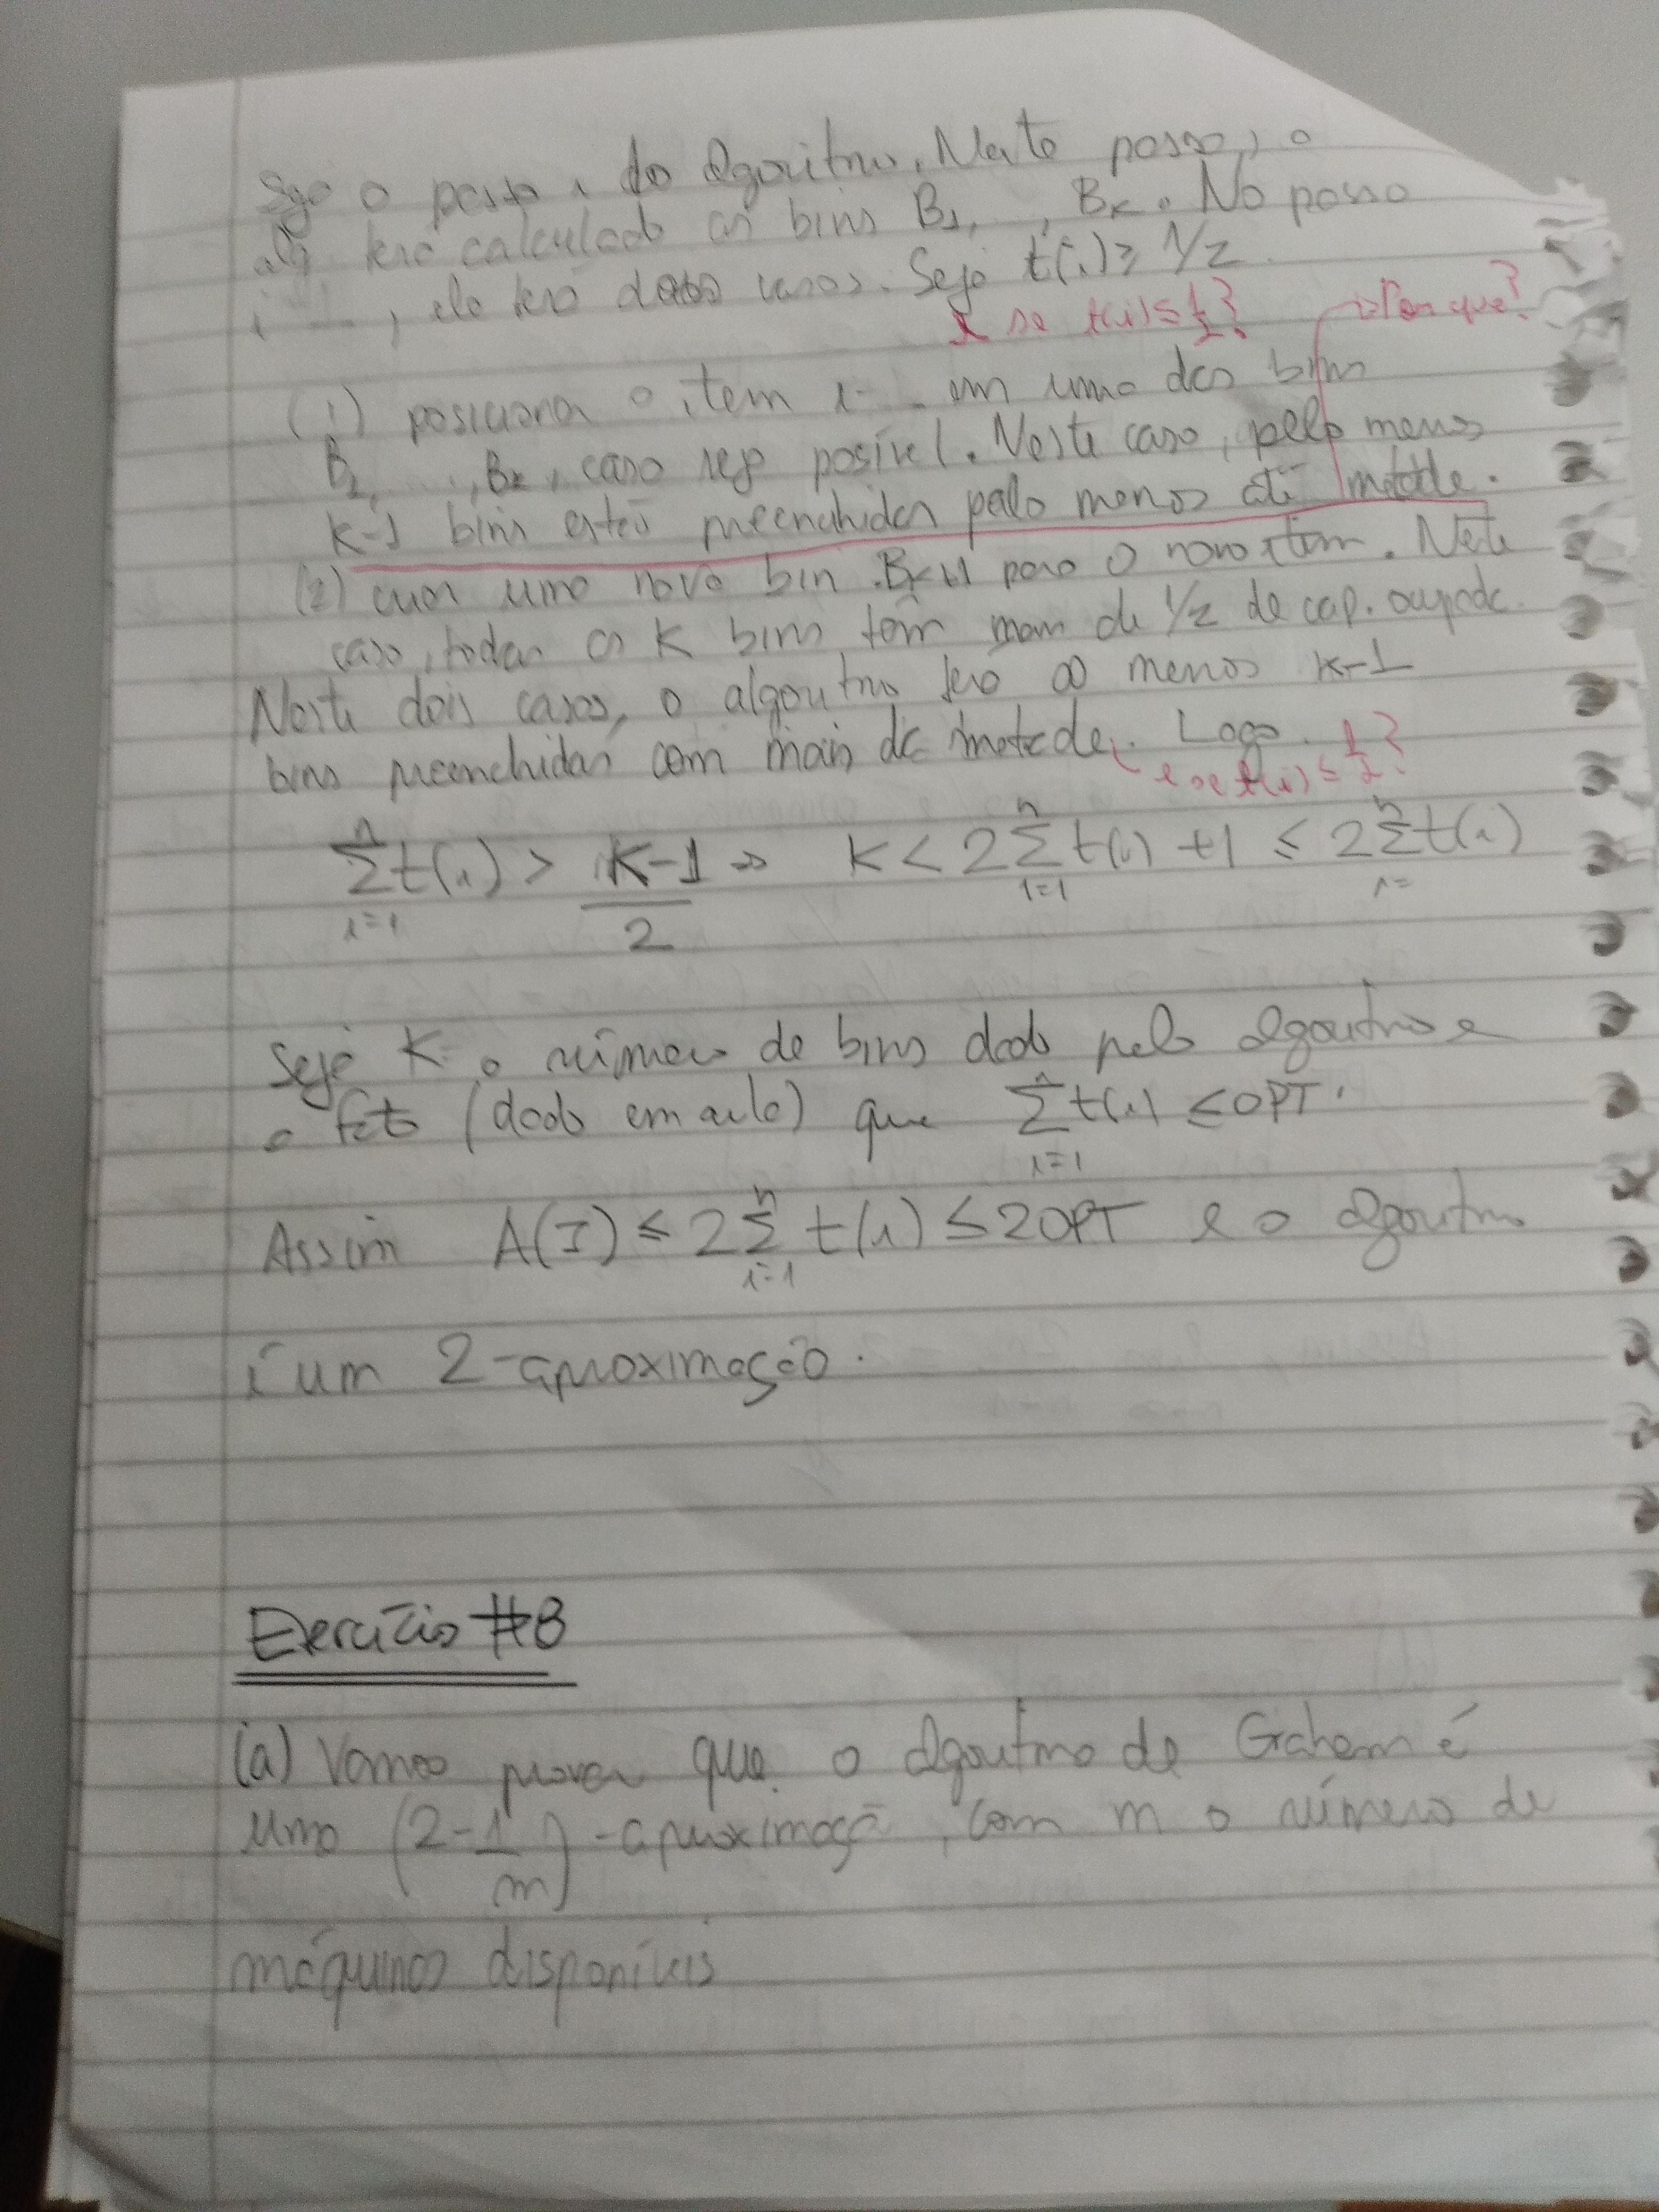 Seja o passo i do algoritmo. Neste passo, o
alg terá calculado os bins B1, ..., BK. No passo
i ..., ele terá dois casos. Seja t(i) ≥ 1/2
e se t(i) ≤ 1/2? → Por que?
(1) posiciona o item i em uma dos bins
B1, ..., BK, caso seja posível. Neste caso, pelo menos
K-1 bins estão preenchidos pelo menos até metade.
(2) criar uma novo bin BK+1 para o novo item. Neste
caso, todas os K bins têm mais de 1/2 de cap. ocupada.
Neste dois casos, o algoritmo terá ao menos K-1
bins preenchidas com mais da metade. Logo.
e se t(i) ≤ 1/2?
n∑i=1 t(i) > K-1/2 ⇒ K < 2 n∑i=1 t(i) + 1 ≤ 2 n∑i= t(i)
Seja K o número de bins dado pelo algoritmo e
o fato (dado em aula) que n∑i=1 t(i) ≤ OPT.
Assim A(I) ≤ 2 n∑i=1 t(i) ≤ 2OPT e o algoritmo
é um 2-aproximação.
Exercício #8
(a) Vamos provar que o algoritmo de Graham é
uma (2-1/m)-aproximação, com m o número de
máquinas disponíveis